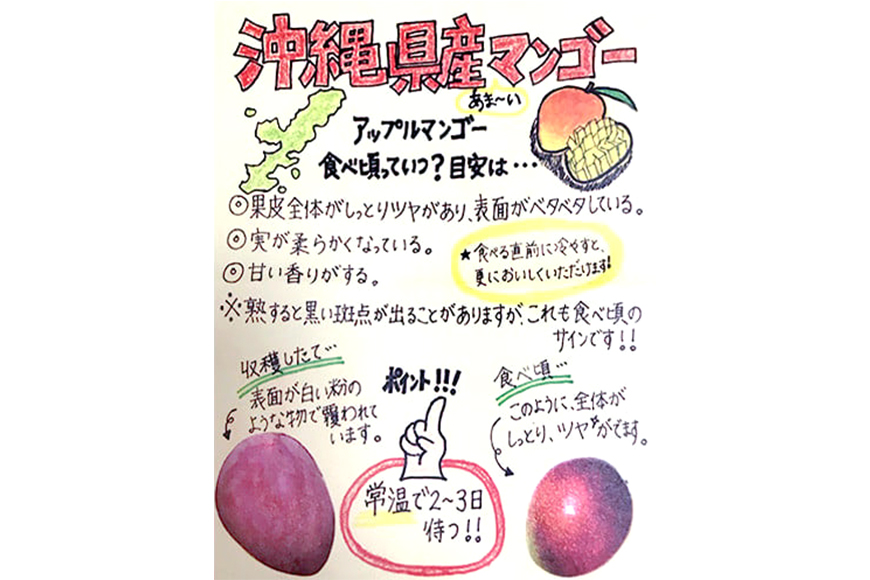 沖縄県産マンゴー
あま〜い
アップルマンゴー
食べ頃っていつ？目安は…
◎果皮全体がしっとりツヤがあり、表面がベタベタしている。
◎実が柔らかくなっている。
◎甘い香りがする。
★食べる直前に冷やすと、
更においしくいただけます!
※熟すると黒い斑点が出ることがありますが、これも食べ頃の
サインです!!
収穫したて…
表面が白い粉の
ような物で覆われて
います。
ポイント!!!
常温で2〜3日
待つ!!
食べ頃…
このように、全体が
しっとり、ツヤがでます。